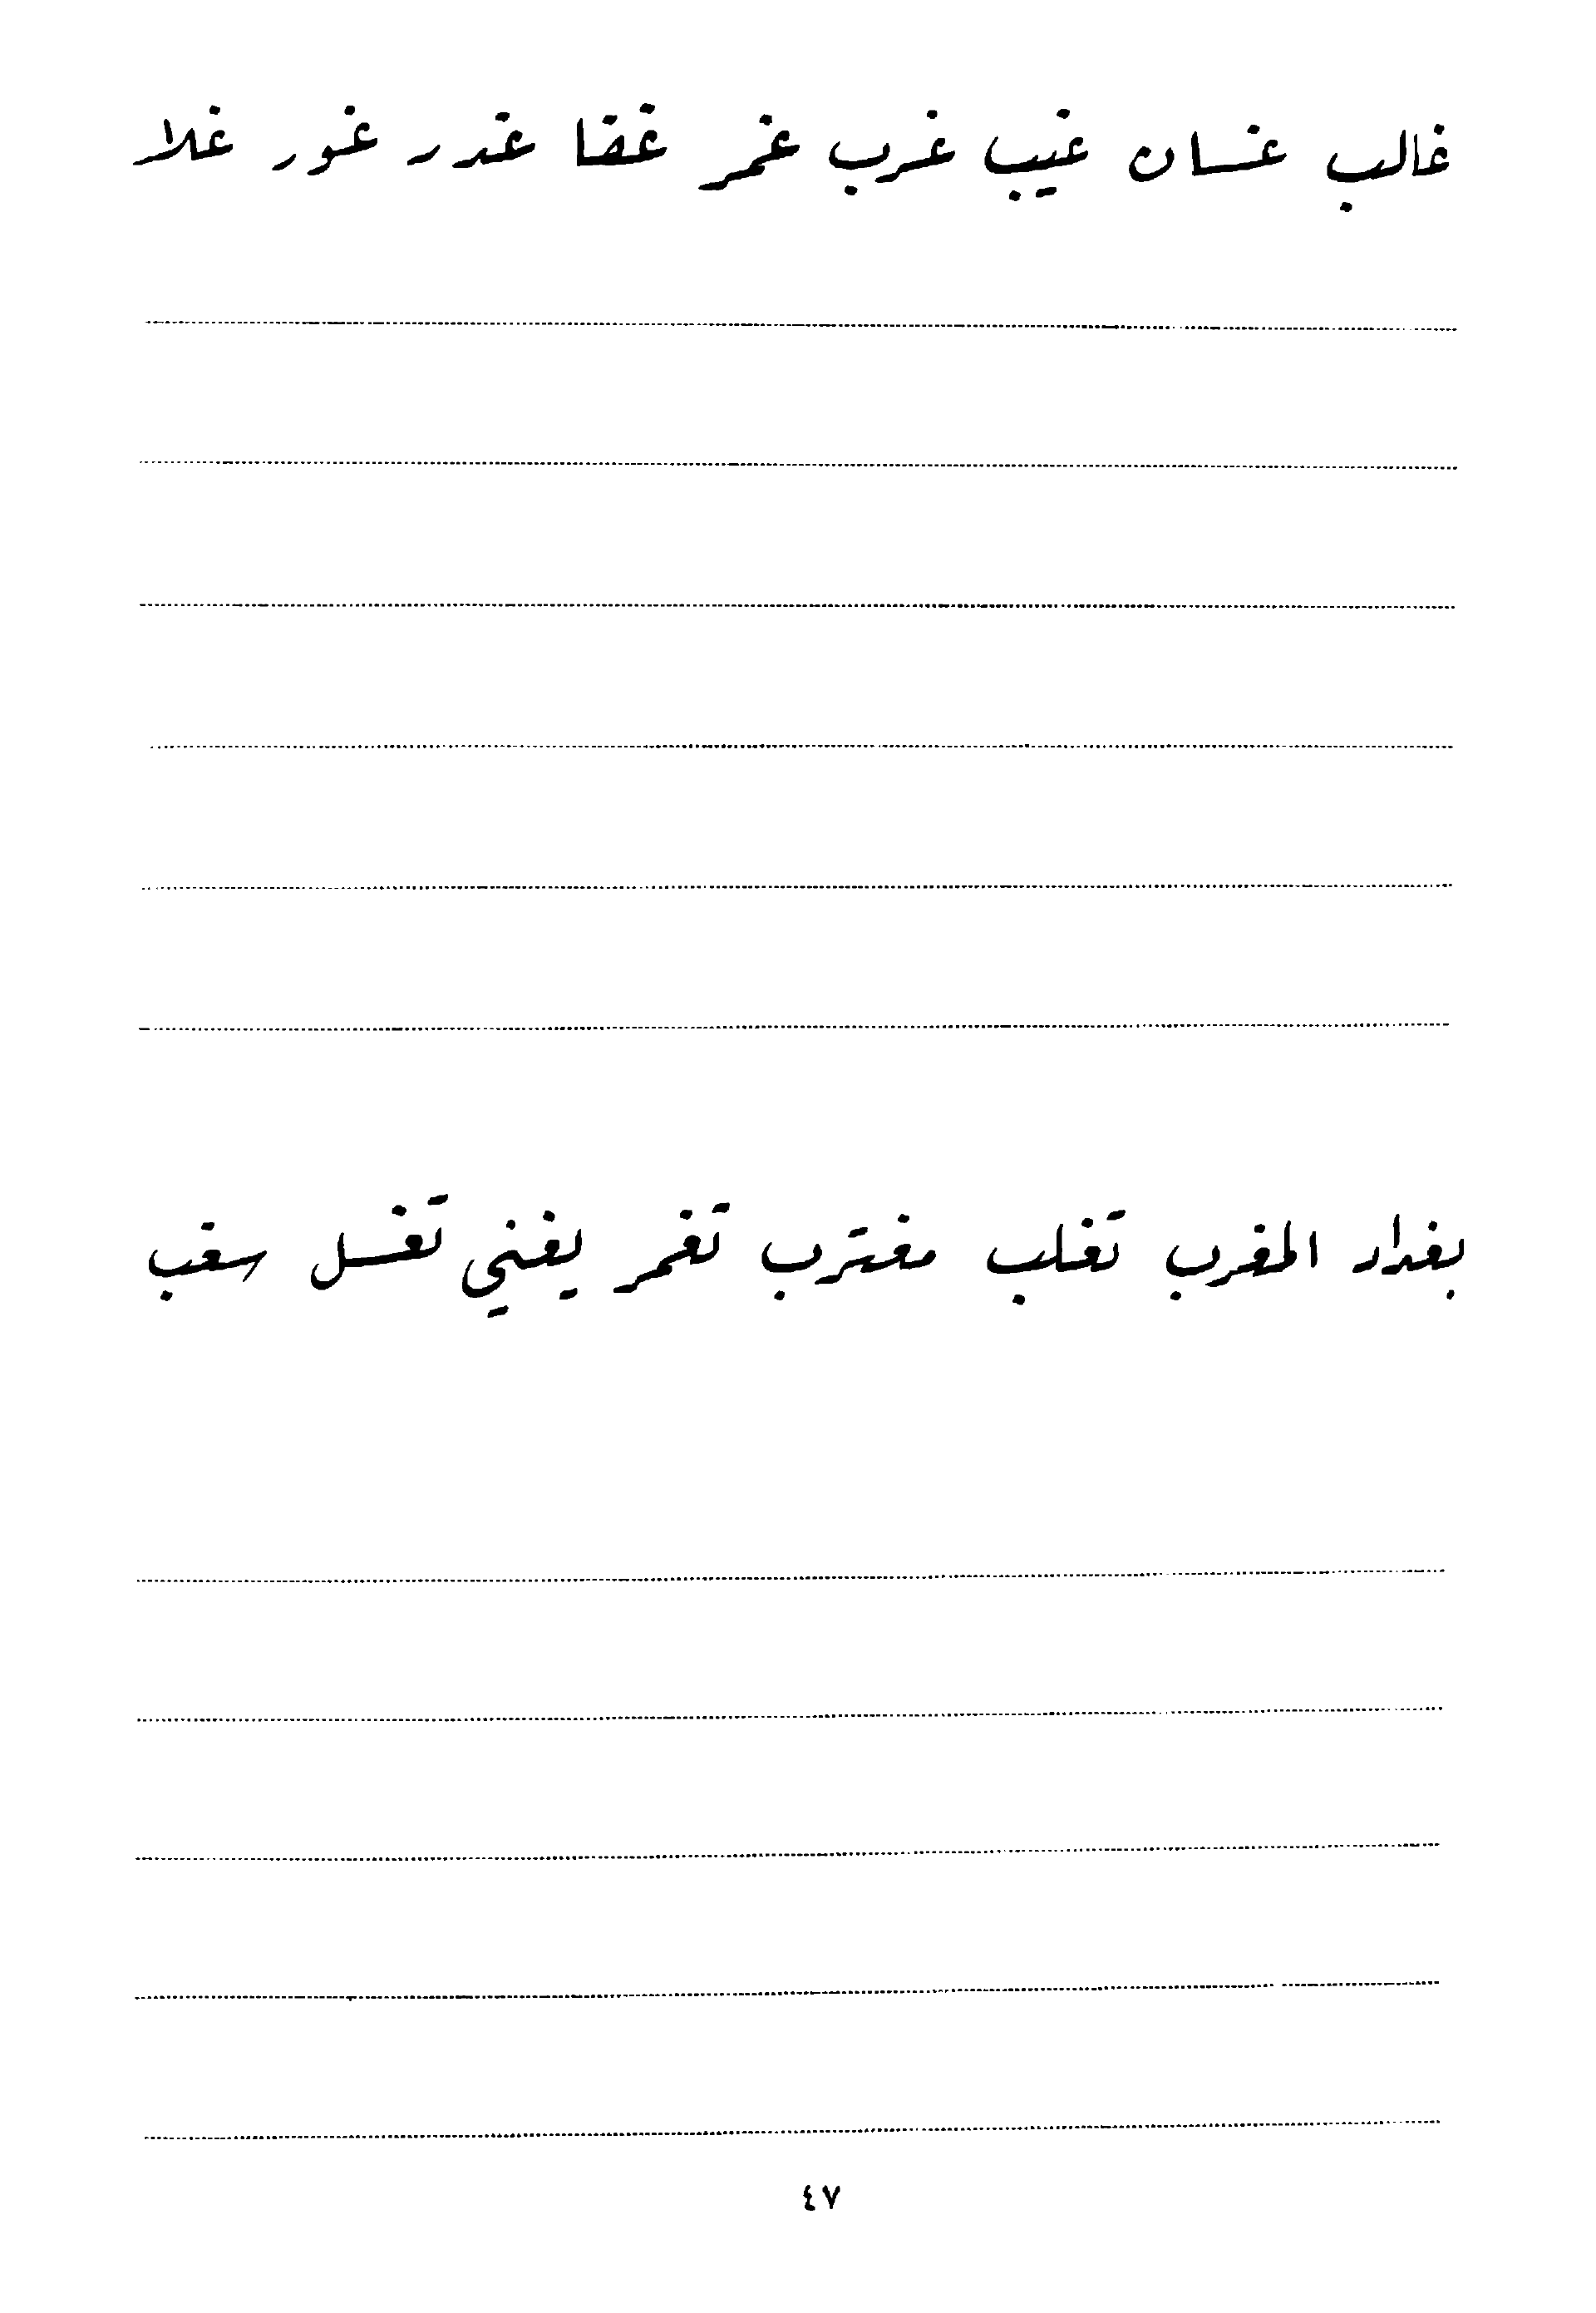 غالب غسان غيب غرب غمر غضا غدر غور غلا
بغداد المغرب تغلب مغترب تغمر يغني تغسل سغب
٤٧